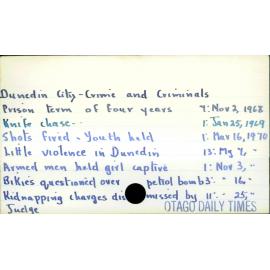 Dunedin City - Crime and Criminals
Prison term of four years 7: Nov 2, 1968
Knife chase - 1: Jan 25, 1969
Shots fired - Youth held 1: Mar 16, 1970
Little violence in Dunedin 13: My 7, "
Armed men held girl captive 1: Nov 3, "
Bikies questioned over petrol bomb 3: " 16 "
Kidnapping charges dismissed by 11: " 25, "
Judge
OTAGO DAILY TIMES